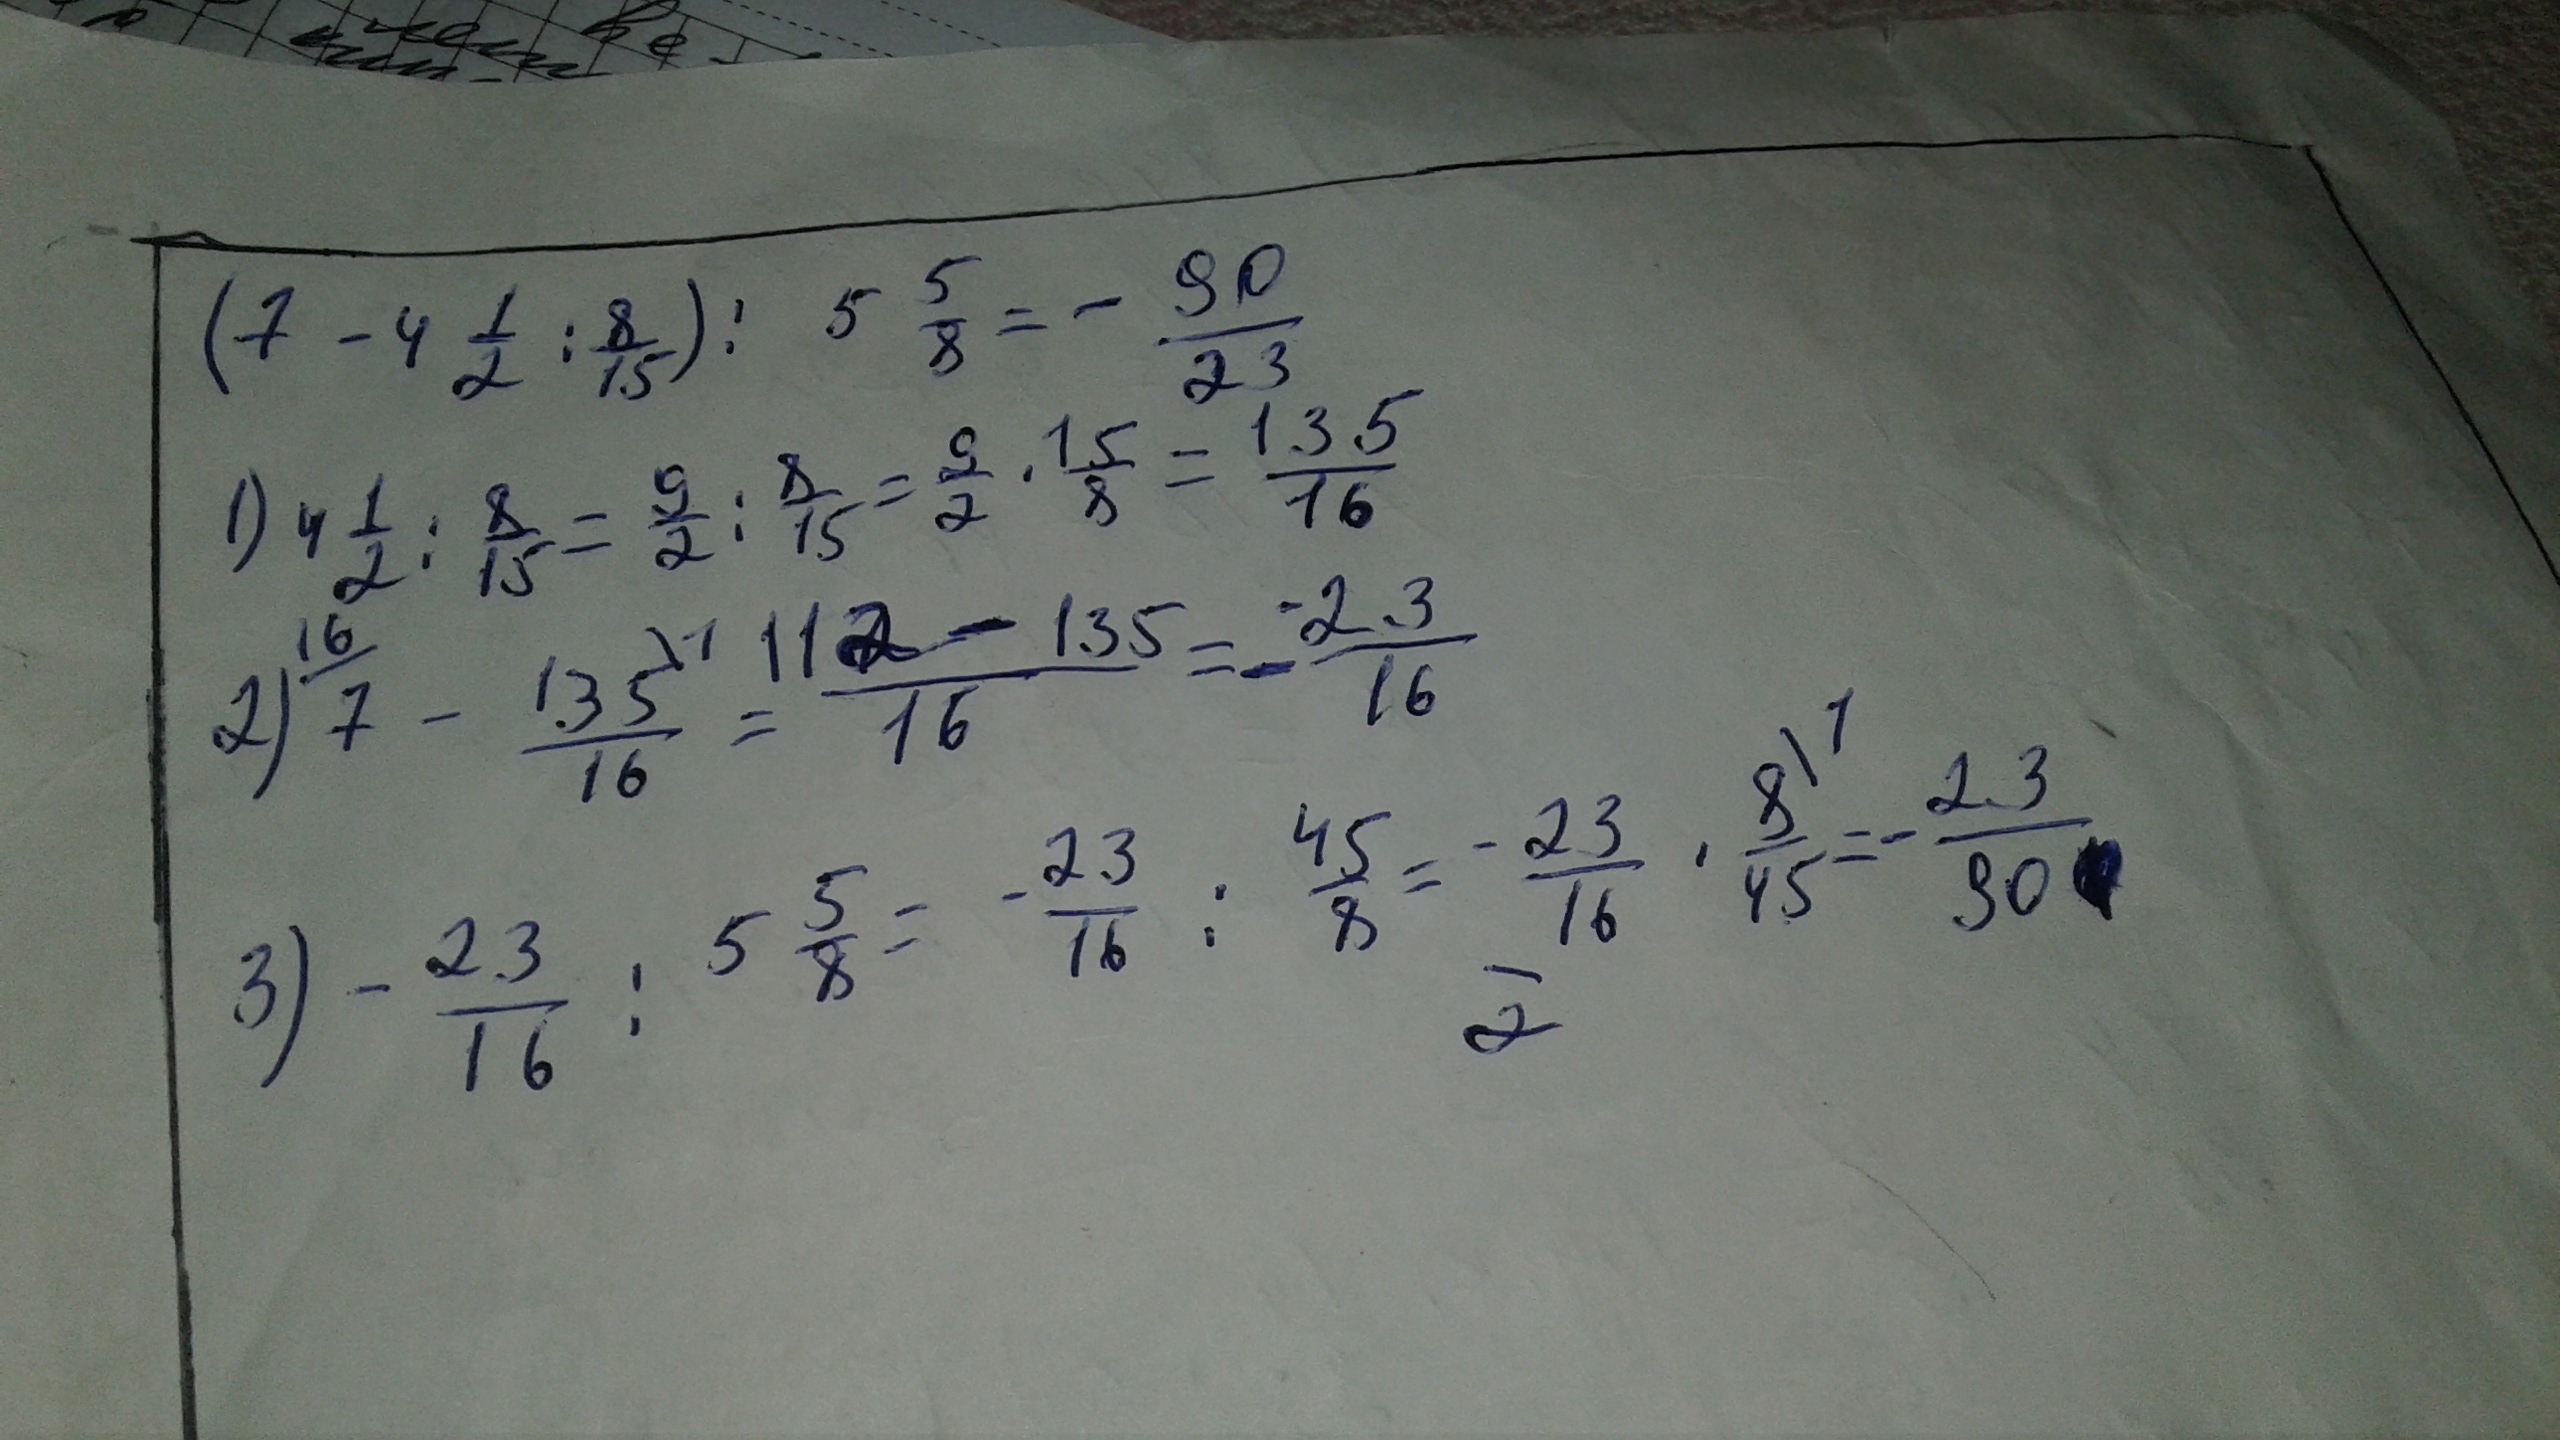 (7 - 4 1/2 : 8/15) : 5 5/8 = - 90/23
1) 4 1/2 : 8/15 = 9/2 : 8/15 = 9/2 · 15/8 = 135/16
2) 16/7 - 135\1/16 = 112 - 135/16 = - -23/16
3) - 23/16 : 5 5/8 = - 23/16 : 45/8 = - 23/16 · 8\1/45 = - 23/90
2